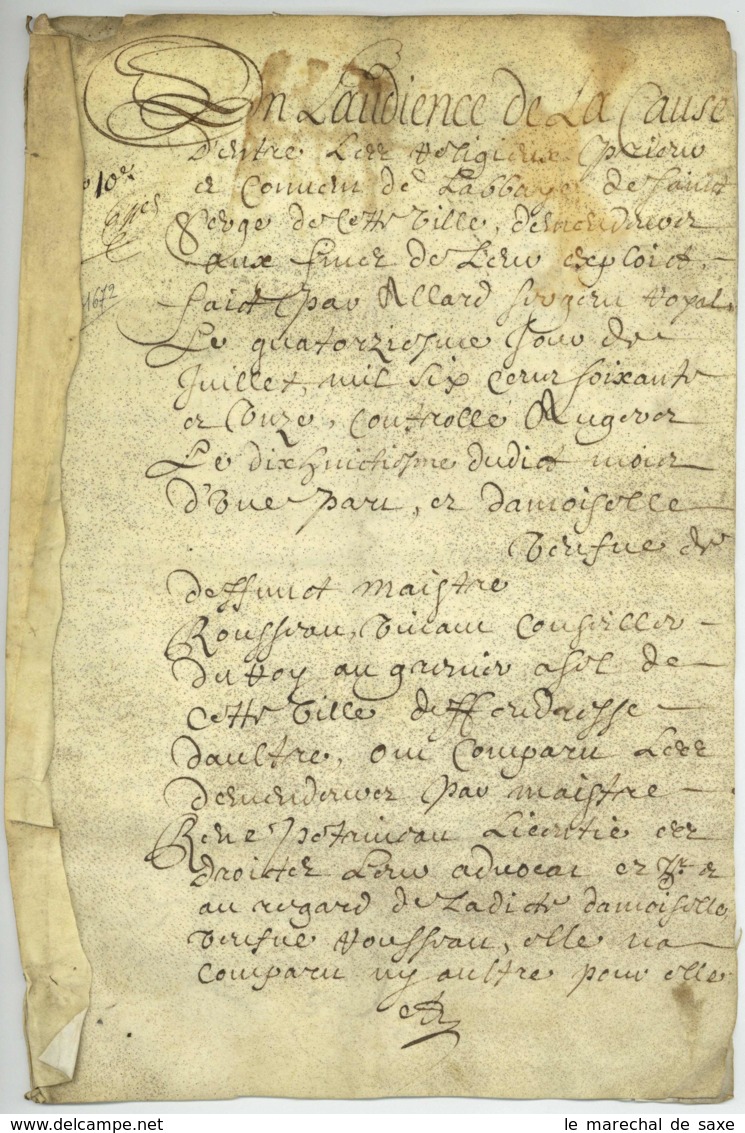 En Laudience de La Cause
D'entre Les Religieux Prieur
et Convent de Labbaye de Saint
Serge de Cette Ville, demendeurs
aux fins de Leur exploict,
faict par Allard sergent Royal
Le quatorziesme Jour de
Juillet, mil six cens soixante
et Unze, Controllé Angers
Le dixhuictiesme dudict mois
D'Une Part, et damoiselle
Veufue de
deffunct maistre
Rousseau, Vivant Conseiller
Du Roy au grenier a sel de
Cette Ville deffenderesse
daultre, ont Comparu Les
Demendeurs Par maistre
René Licentié es
droictes Leur advocat et
au regard de Ladicte damoiselle
Veufue Rousseau, elle na
Comparu ny aultre pour elle
10e
1672
le marechal de saxe